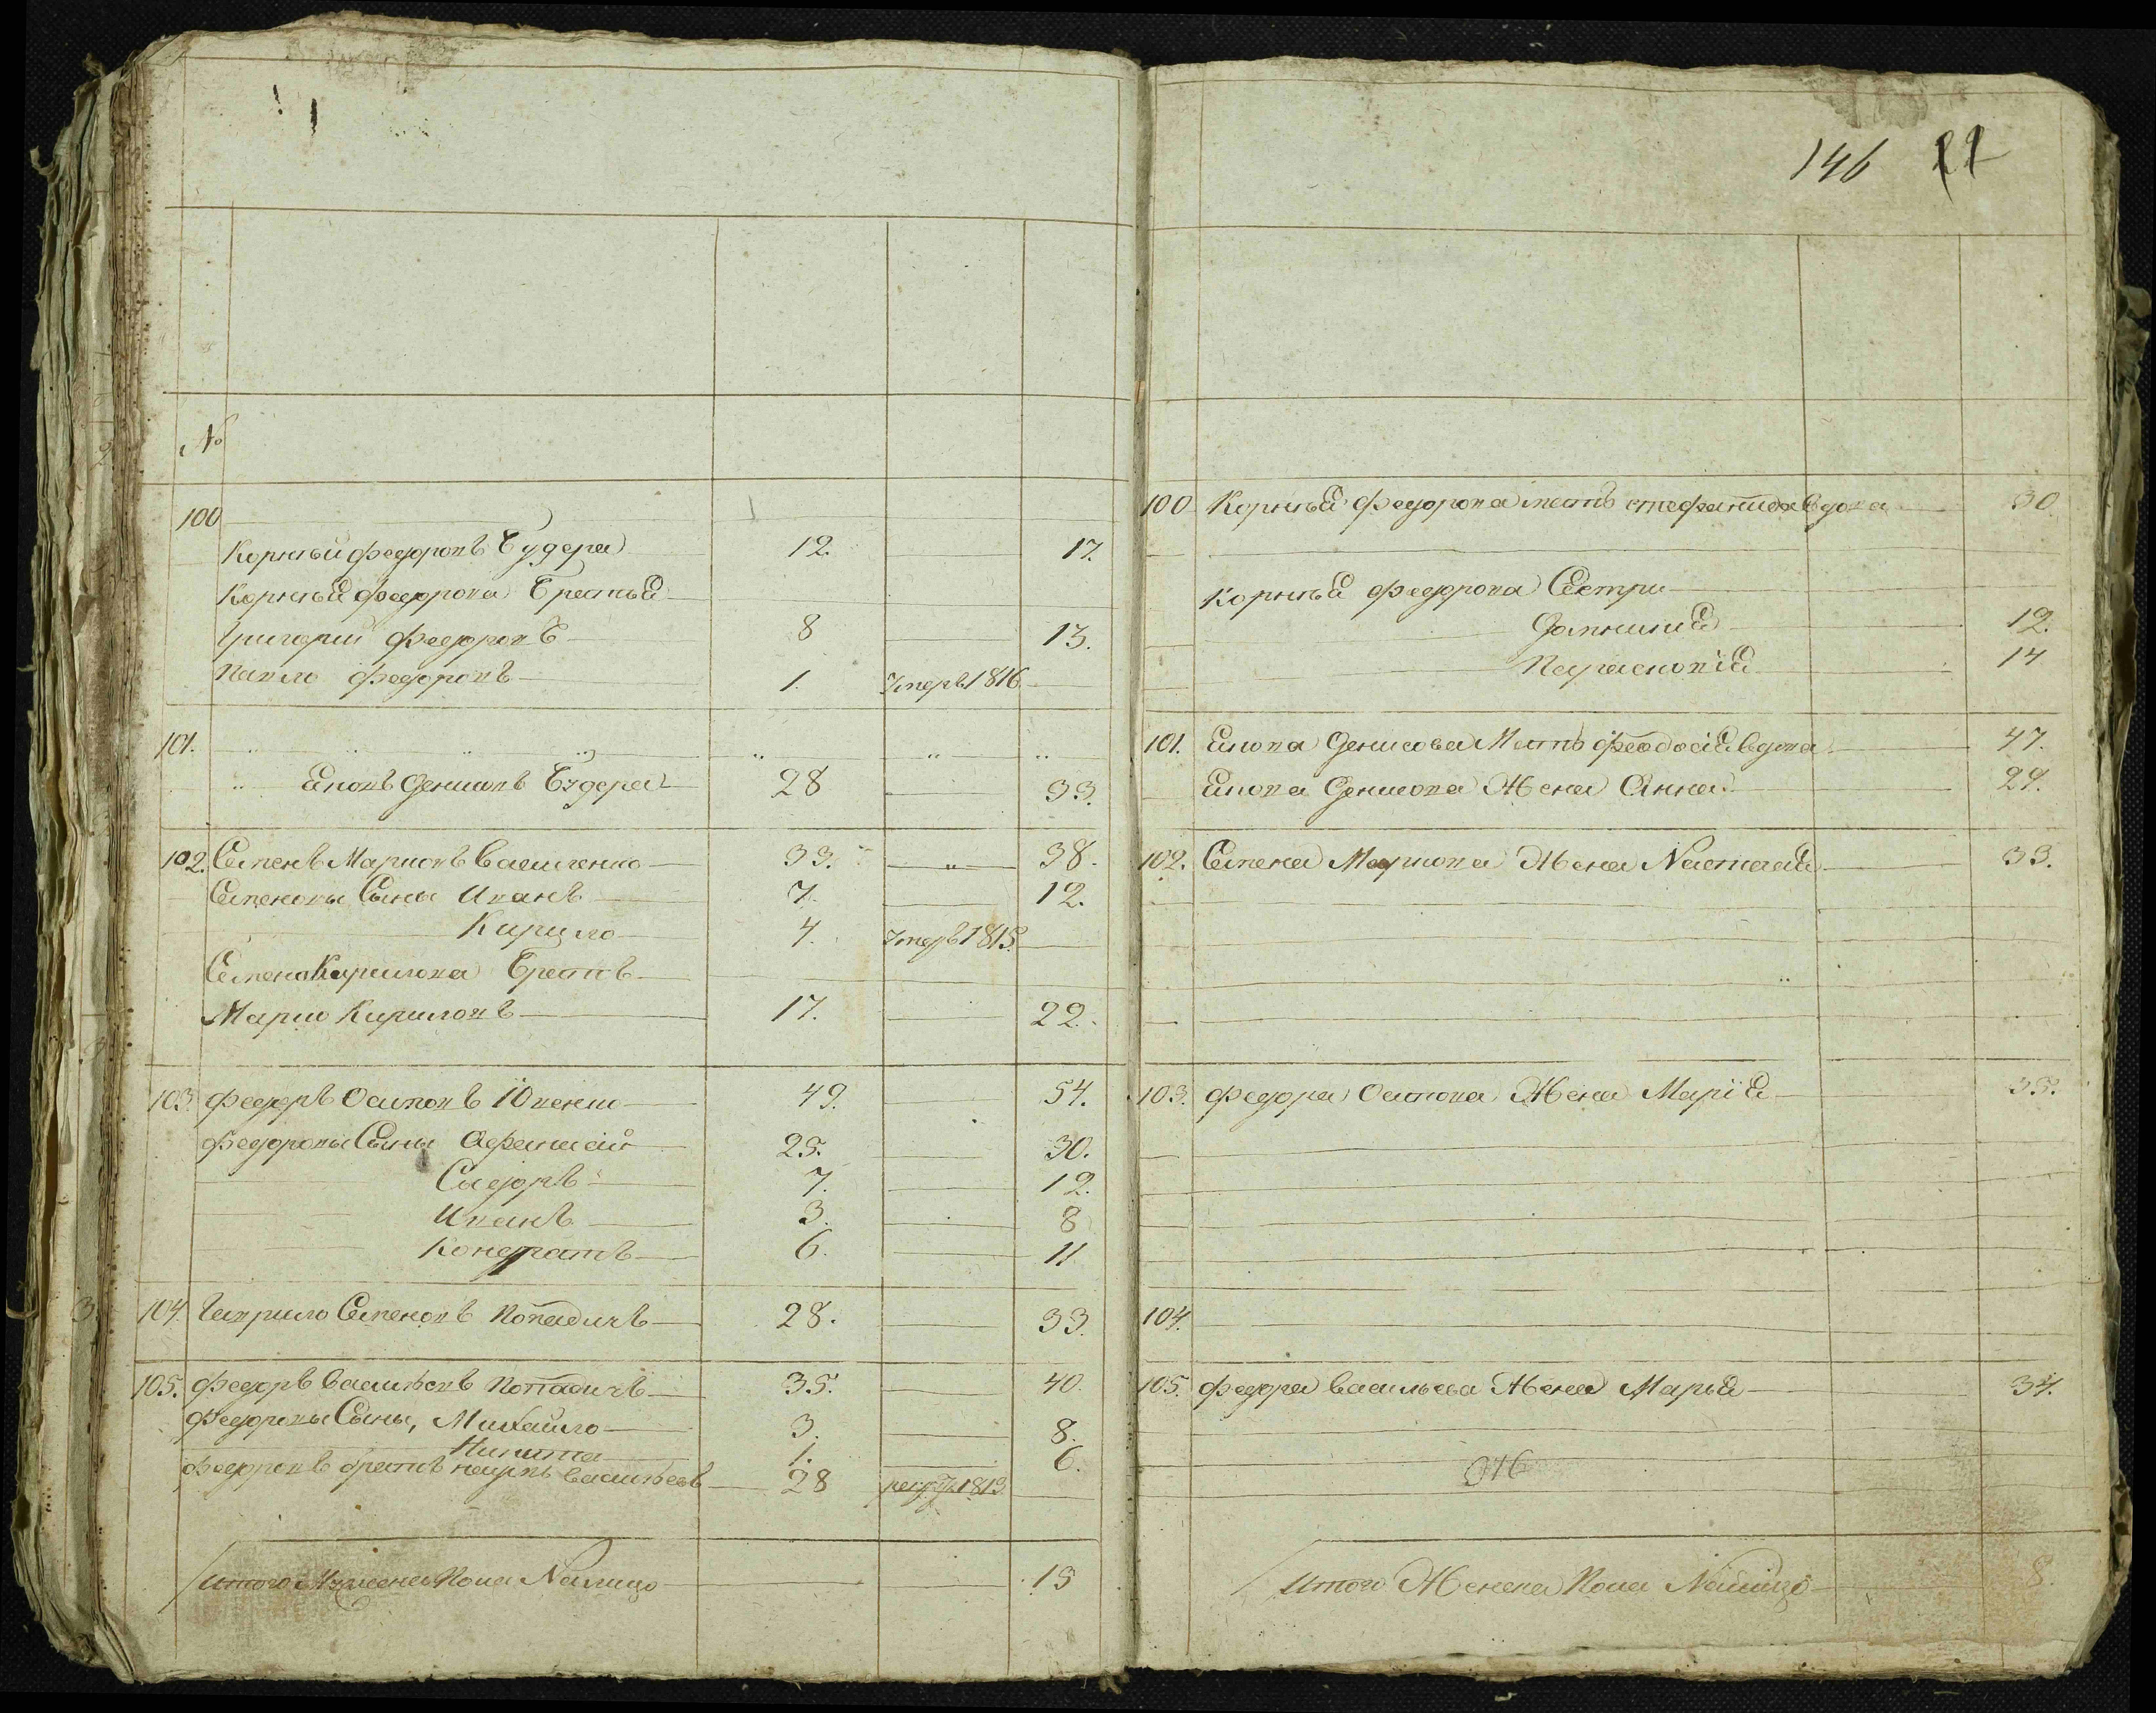 146 22
№
100
Корнѣй Федоровъ Будера 12. 17.
Корнѣя Федорова Братья
Григорий Федоровъ 8 13.
Павло Федоровъ 1. умеръ 1816
101.
Яковъ Денисовъ Будера 28 33.
102. Семенъ Марковъ Василенко 33. 38.
Семеновы Сыны Иванъ 7. 12.
Кирило 4. умеръ 1815.
Семена Кирилова Братъ
Марко Кириловъ 17. 22.
103. Федоръ Осиповъ Юхенко 49. 54.
Федоровы Сыны Афанасий 25. 30.
Сидоръ 7. 12.
Иванъ 3. 8
Кондратъ 6. 11
104. Гаврило Семеновъ Попадичъ 28. 33.
105. Федоръ Васильевъ Попадичъ 35. 40.
Федоровы Сыны, Михайло 3. 8.
Никита 1. 6.
Федоровъ братъ Васильевъ 28 1813
Итого Мужеска Пола Налицо 15
100 Корнѣя Федорова мать Стефанида вдова 30.
Корнѣя Федорова Сестри
Домникия 12.
Парасковия 14
101. Якова Денисова Мать Феодосия вдова 47.
Якова Денисова Жена Анна 29.
102. Семена Маркова Жена Настасья 33.
103. Федора Осипова Жена Мария 35.
104.
105. Федора Васильева Жена Марья 34.
Итого Женска Пола Налицо 8.